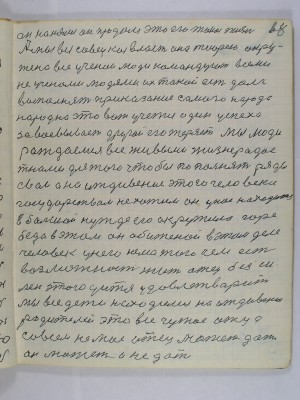 68
он нанban он продал это его
А мы вы советская власть она творено окру-
жена все ученые люди командуют всеми
не учеными людями их такой есть долг
выполнят приказание самого народа
народно это вот учетия один успеха
завоевывает другой его теряет мы люди
раждаемся все живыми жизнерадос
тными для того чтобы пополнят ряды
свои а на иждивение этого человека
государством не хотим он уже находится
в большой нужде его окружило горе
беда в этом он обиженой в этом деле
человек у него нема того чем ест
возможност жит отец без си
лен этого
мы все дети находимся на иждивении
родителей это все чужое а
совсем не мое отец может дат
он может и не дат